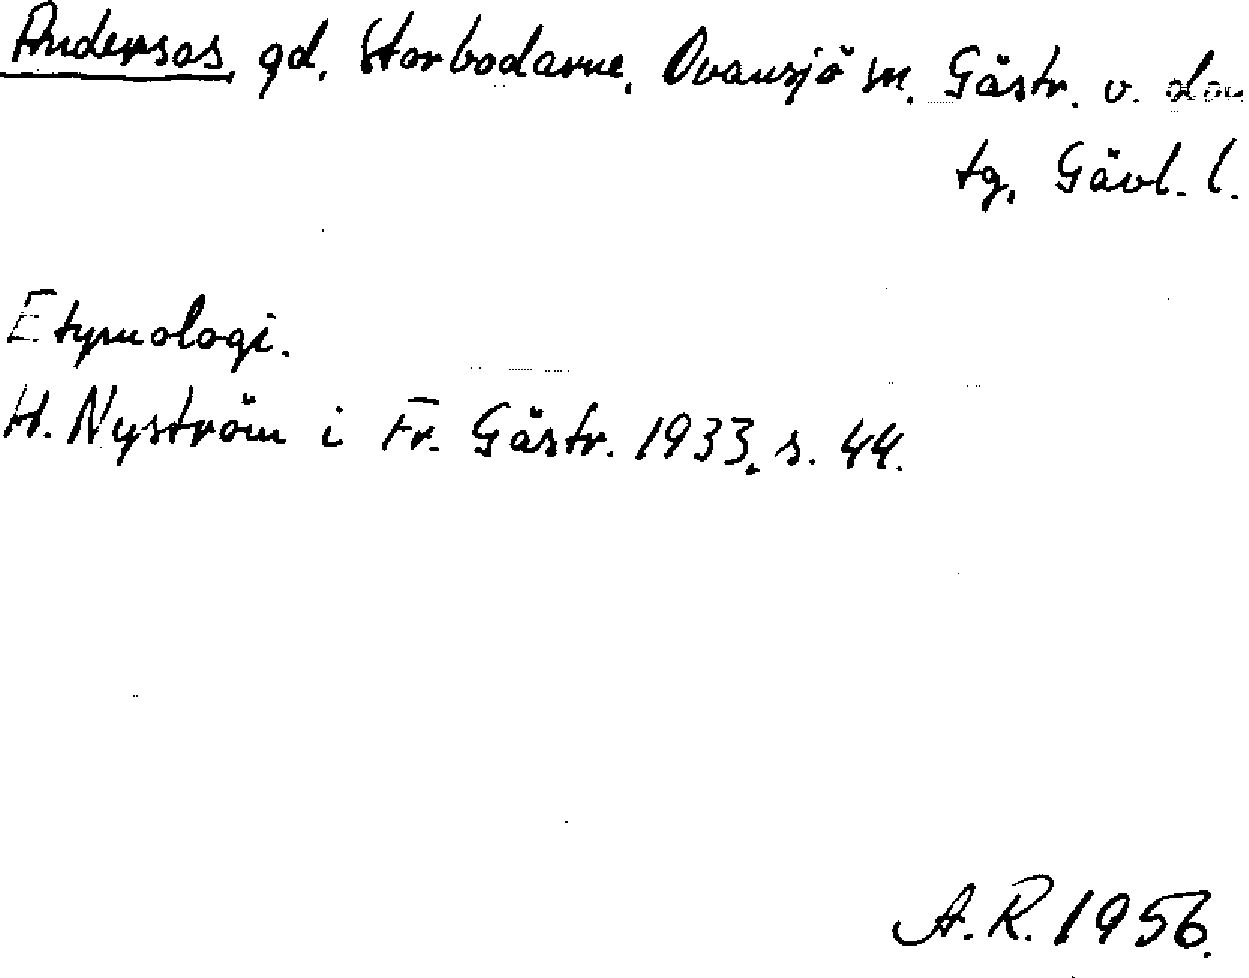 Andersas, gd. Storbodarne, Ovansjö sn. Gästr. v. dom
tg, Gävl. l.
Etymologi.
H. Nyström i Fr. Gästr. 1933, s. 44.
A.R. 1956.